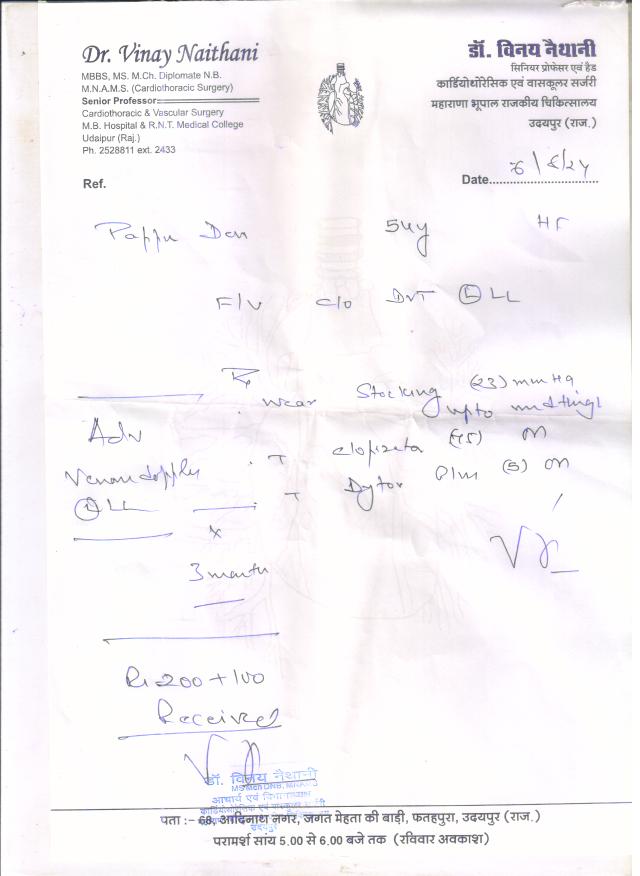 Dr. Vinay Naithani
MBBS, MS. M.Ch. Diplomate N.B.
M.N.A.M.S. (Cardiothoracic Surgery)
Senior Professor
Cardiothoracic & Vascular Surgery
M.B. Hospital & R.N.T. Medical College
Udaipur (Raj.)
Ph. 2528811 ext. 2433
डॉ. विनय नैथानी
सिनियर प्रोफेसर एवं हैड
कार्डियोथोरेसिक एवं वासकूलर सर्जरी
महाराणा भूपाल राजकीय चिकित्सालय
उदयपुर (राज.)
Ref.
Date
Pappu 54y
F/U c/o DVT Ⓛ LL
Rx
wear Stocking (23) mmHg
upto
Adv
T
Ⓛ LL
T Dytor Plus (5) on
x
3 month
Rs 200 + 100
Received
डॉ. विनय नैथानी
आचार्य एवं विभागाध्यक्ष
उदयपुर
पता :– 68, आदिनाथ नगर, जगत मेहता की बाड़ी, फतहपुरा, उदयपुर (राज.)
परामर्श सायं 5.00 से 6.00 बजे तक (रविवार अवकाश)